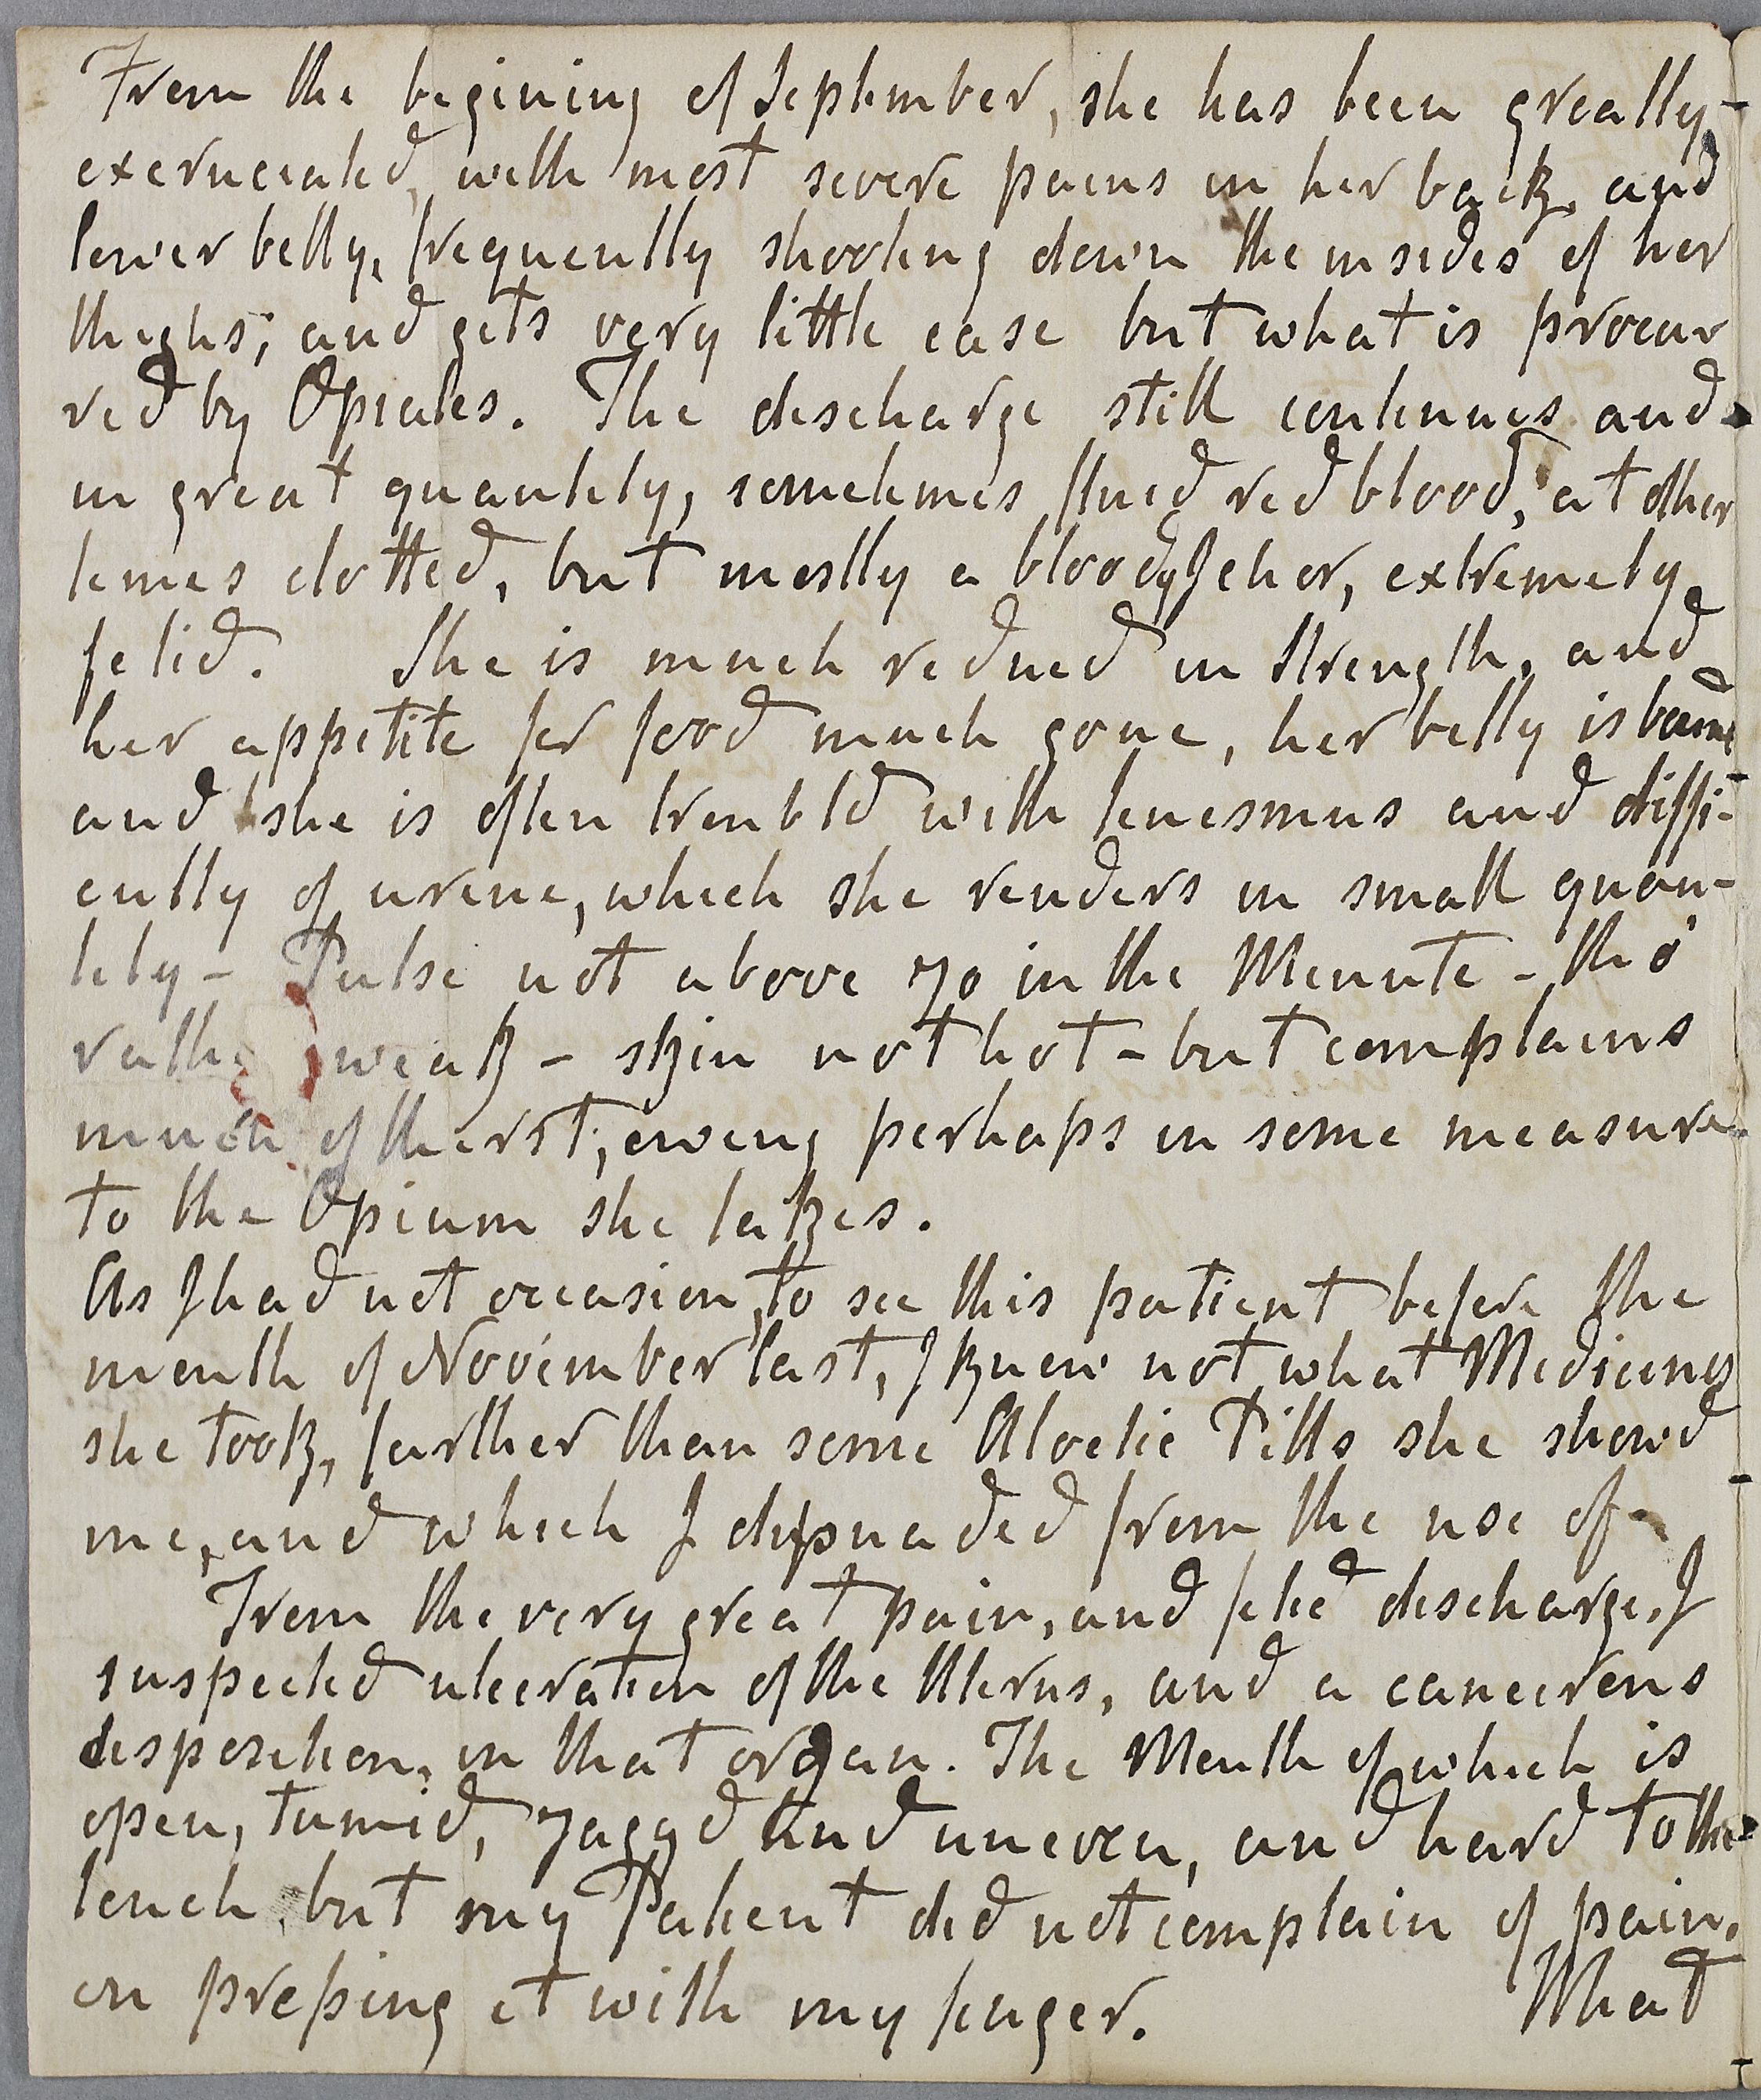 From the begining of September, she has been greatly
excruciated, with most severe pains in her back, and
lower belly, frequently shooting down the insides of her
thighs; and gets very little ease but what is procur
red by Opiates. The discharge still continues and
in great quantity, sometimes fluid red blood, at other
times clotted, but mostly a bloody Ichor, extremely
fetid. She is much reduced in strength, and
her appetite for food much gone, her belly is bound
and she is often troubld with tenesmus and diffi-
culty of urine, which she renders in small quan-
tity - Pulse not above 70 in the Minute - tho'
rather weak - skin not hot - but complains
much of thirst; owing perhaps in some measure
to the Opium she takes.
As I had not occasion, to see this patient before the
month of November last, I know not what Medicines
she took, farther than some Aloetic Pills she showd
me, and which I dissuaded from the use of
From the very great pain, and fetid discharge, I
suspected ulceration of the Uterus, and a cancerous
disposition, in that organ. The Mouth of which is
open, tumid, Jaggd and uneven, and hard to the
touch, but my Patient did not complain of pain,
on pressing it with my finger. What